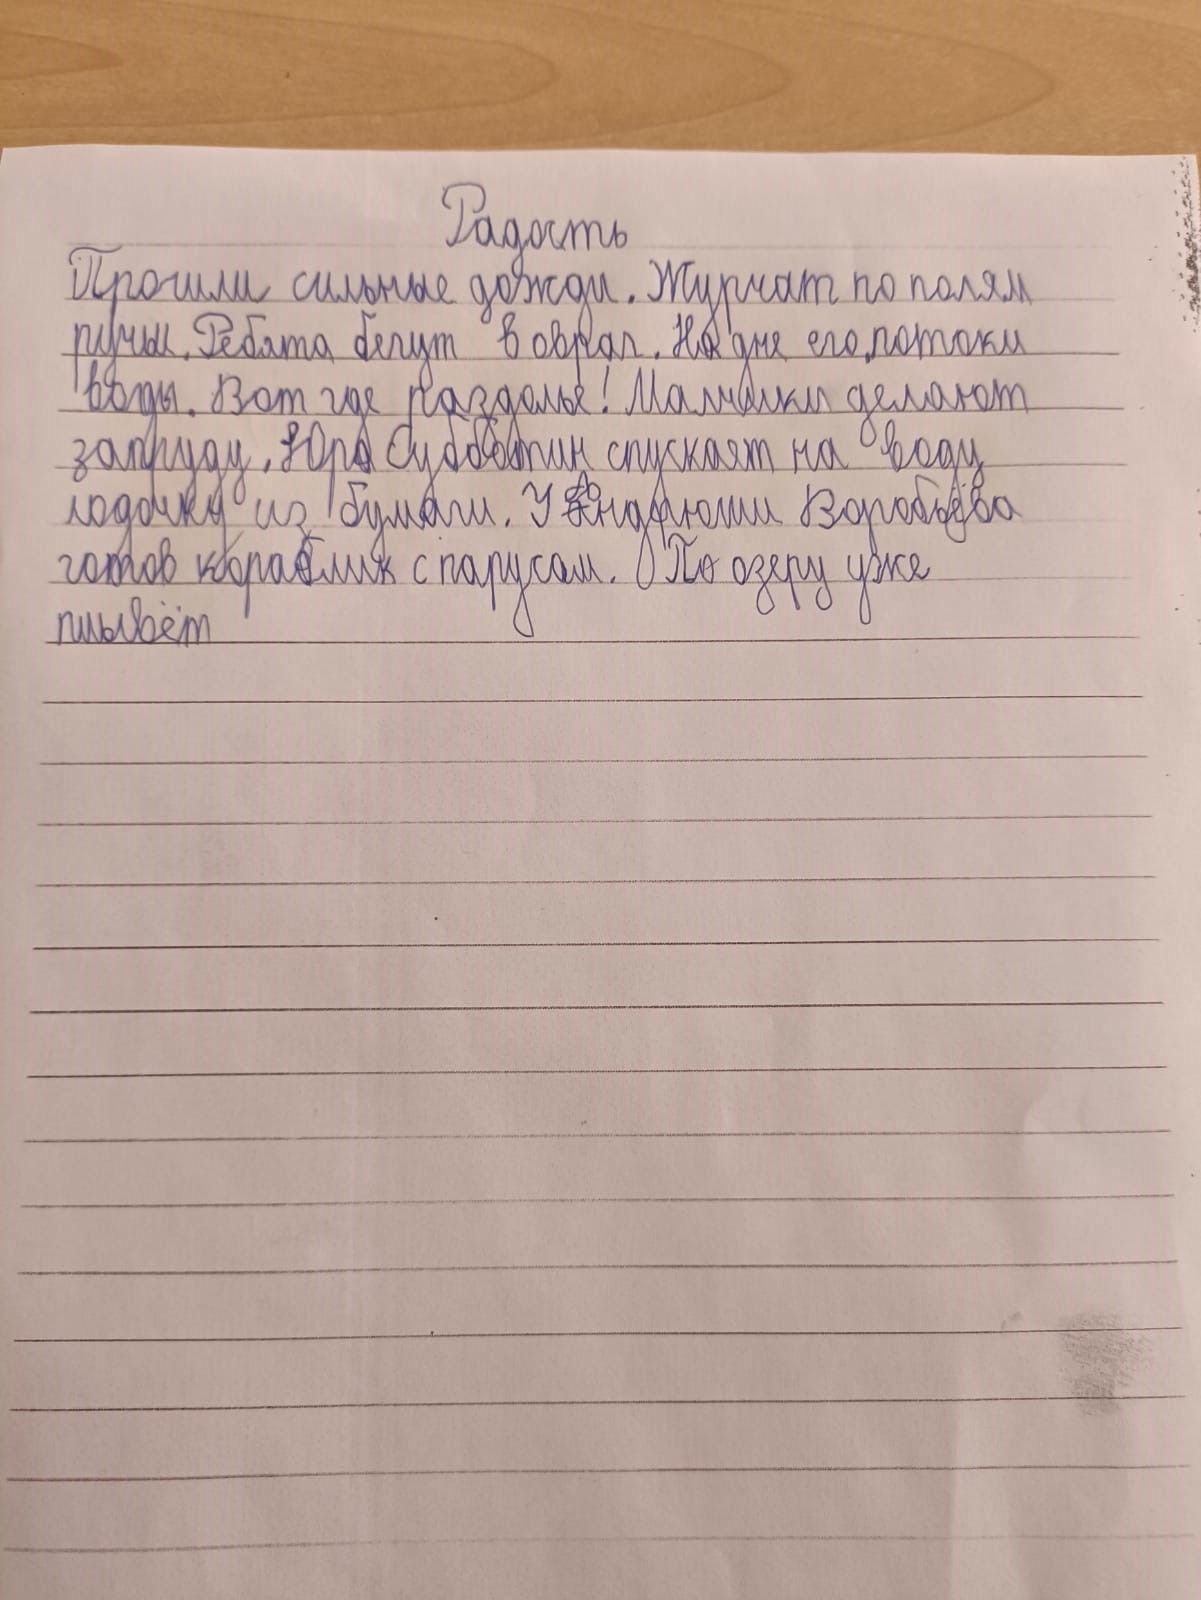 Радость
Прошли сильные дожди. Журчат по полям
ручьи. Ребята бегут в овраг. На дне его потоки
воды. Вот где раздолье! Малчики делают
запруду. Юра Субботин спускаят на воду
лодочку из бумаги. У Андрюши Воробьёва
готов кораблик с парусам. По озеру уже
плывёт